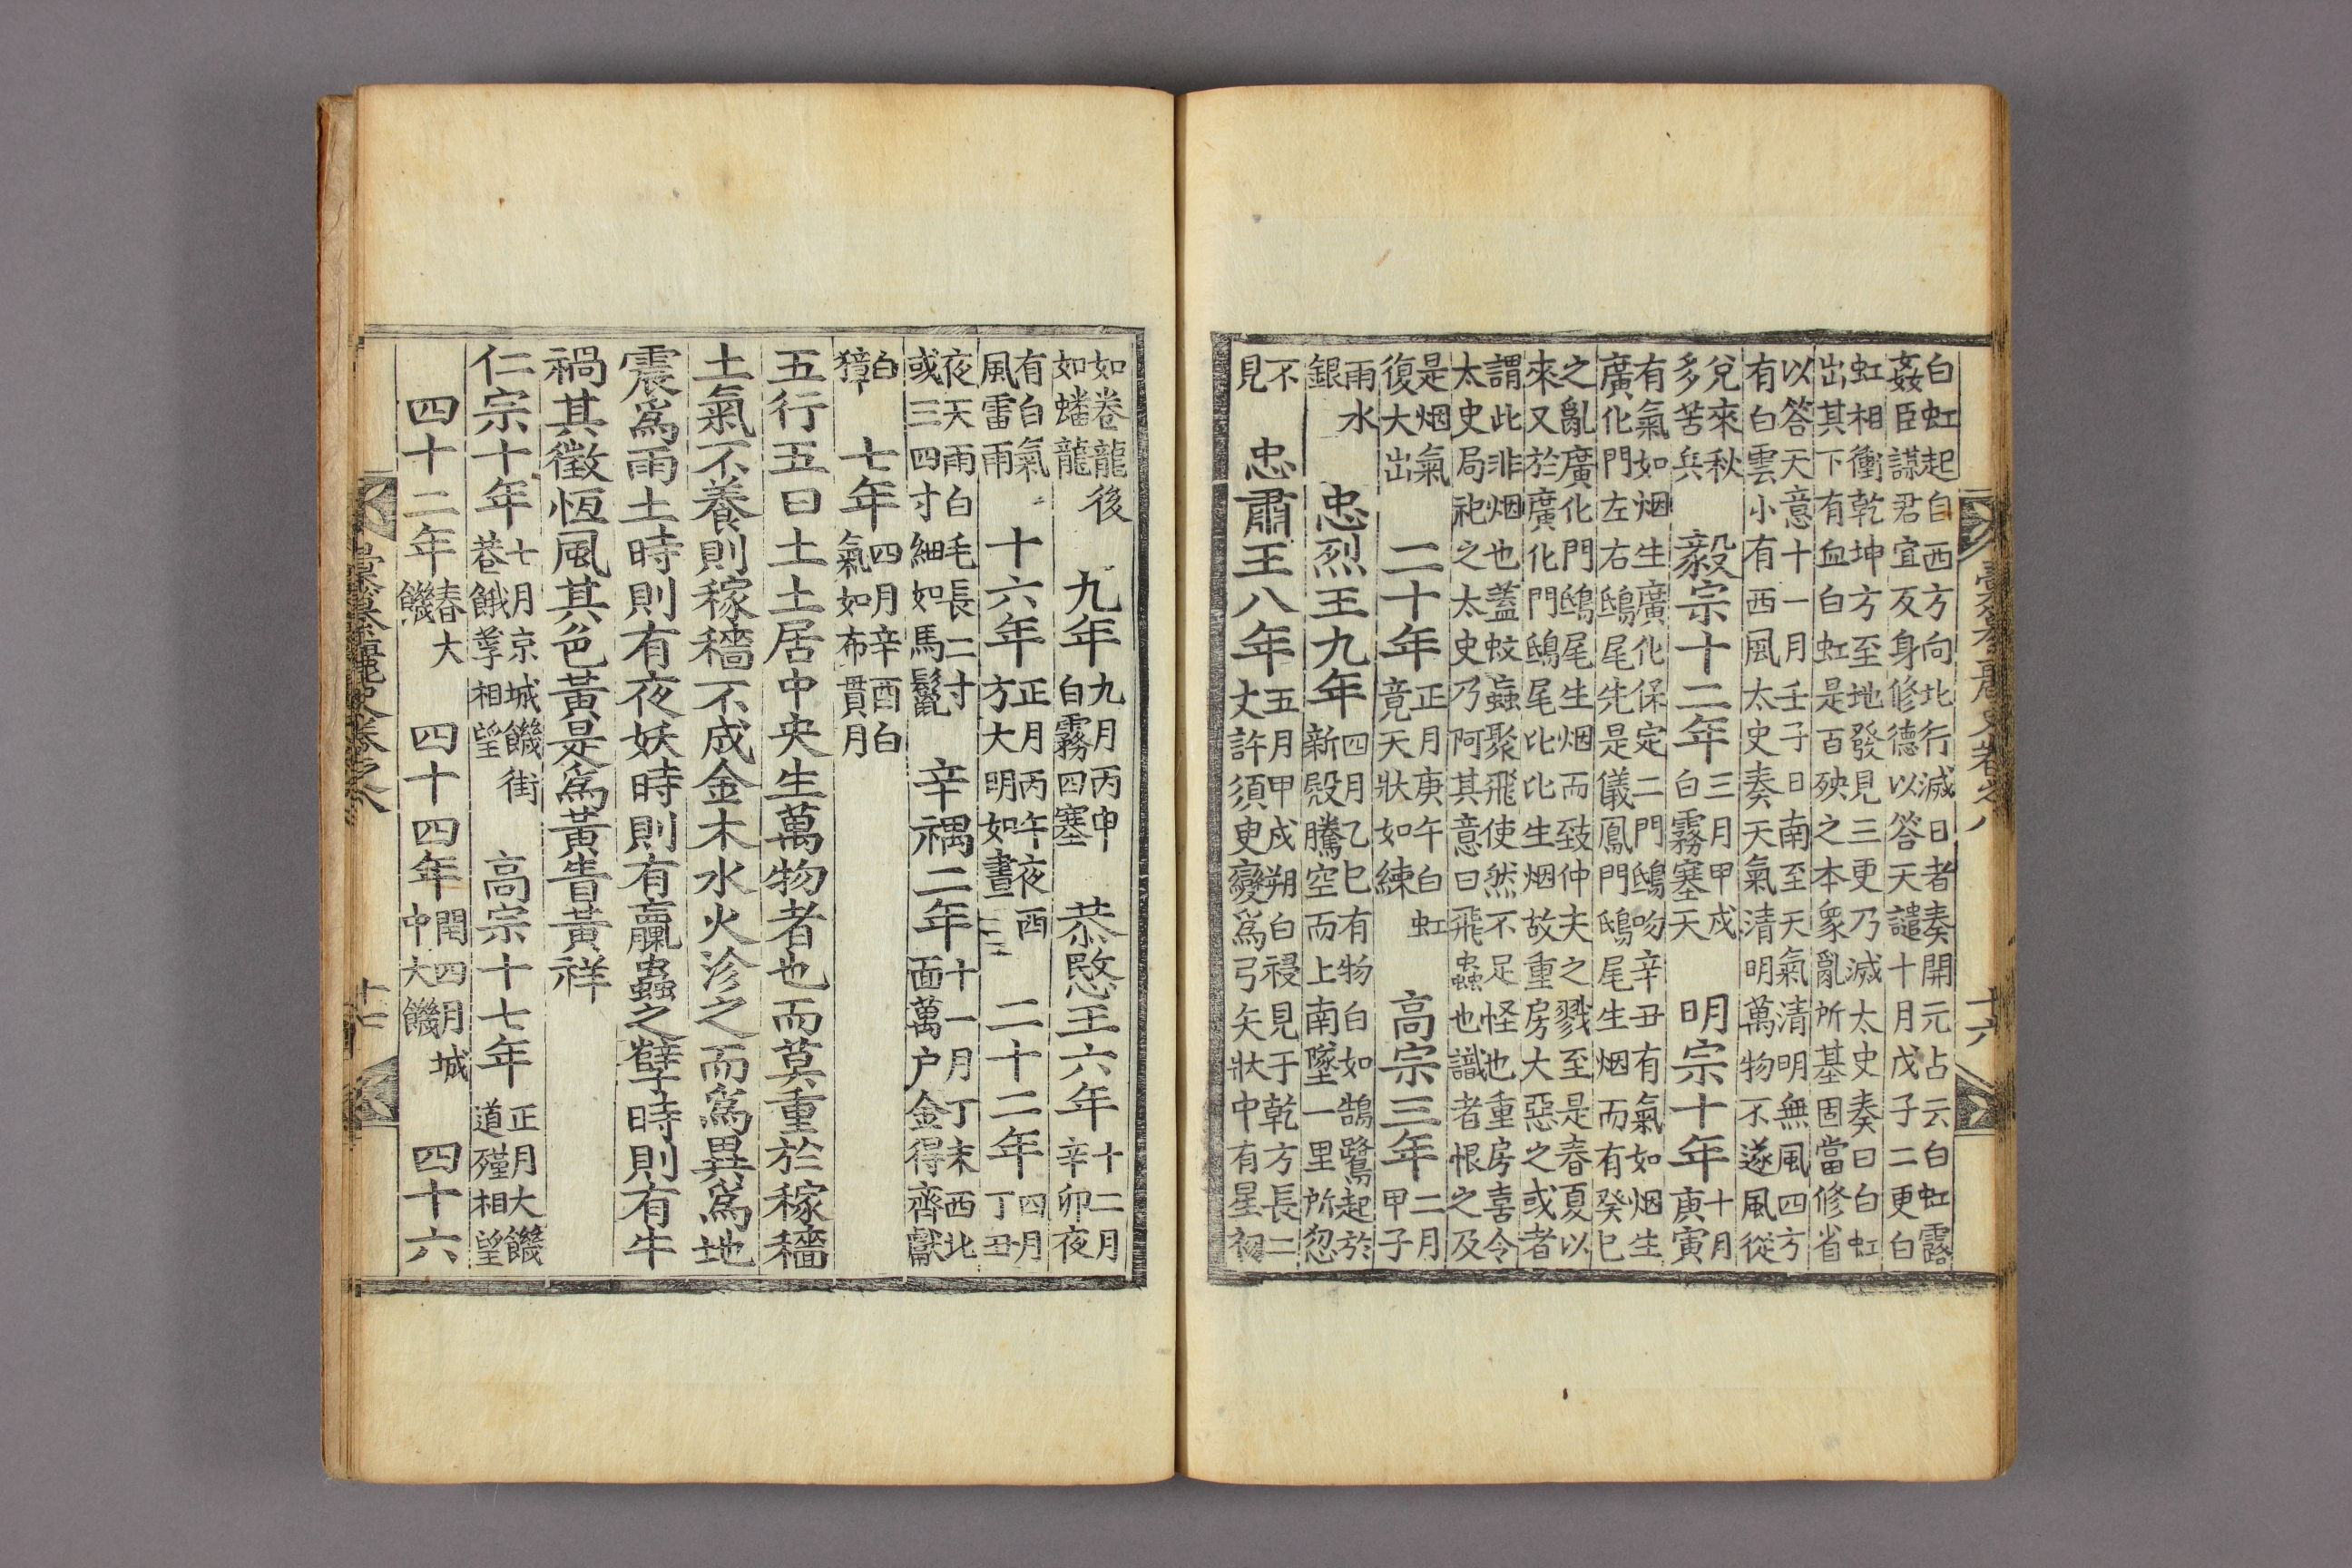 白虹起自西方向北行滅日者奏開元占云白虹露
姦臣謀君宜反身修德以答天譴十月戊子二更白
虹相衝乾坤方至地發見三更乃滅太史奏曰白虹
出其下有血白虹是百殃之本衆亂所基固當修省
以答天意十一月壬子日南至天氣清明無風四方
有白雲小有西風太史奏天氣清明萬物不遂風從
兌來秋
多苦兵
毅宗十二年
三月甲戌
白霧塞天
明宗十年
十月
庚寅
有氣如烟生廣化保定二門鴟吻辛丑有氣如烟生
廣化門左右鴟尾先是儀鳳門鴟尾生烟而有癸巳
之亂廣化門鴟尾生烟而致仲夫之戮至是春夏以
來又於廣化門鴟尾比比生烟故重房大惡之或者
謂此非烟也蓋蚊蟲聚飛使然不足怪也重房喜令
太史局祀之太史乃阿其意曰飛蟲也識者恨之及
是烟氣
復大出
二十年
正月庚午白虹
竟天狀如練
高宗三年
二月
甲子
雨水
銀
忠烈王九年
四月乙巳有物白如鵠鷺起於
新殿騰空而上南墜一里所忽
不
見
忠肅王八年
五月甲戌朔白祲見于乾方長二
丈許須臾變爲弓矢狀中有星初
十六
如卷龍後
如蟠龍
九年
九月丙申
白霧四塞
恭愍王六年
十二月
辛卯夜
有白氣
風雷雨
十六年
正月丙午夜西
方大明如晝
二十二年
四月
丁丑
夜天雨白毛長二寸
或三四寸細如馬鬣
辛禑二年
十一月丁未西北
面萬户金得齊獻
白
獐
七年
四月辛酉白
氣如布貫月
五行五曰土土居中央生萬物者也而莫重於稼穡
土氣不養則稼穡不成金木水火沴之而爲異爲地
震爲雨土時則有夜妖時則有臝蟲之孽時則有牛
禍其徵恆風其色黃是爲黃眚黃祥
仁宗十年
七月京城饑街
巷餓莩相望
高宗十七年
正月大饑
道殣相望
四十二年
春大
饑
四十四年
閏四月城
中大饑
四十六
十七